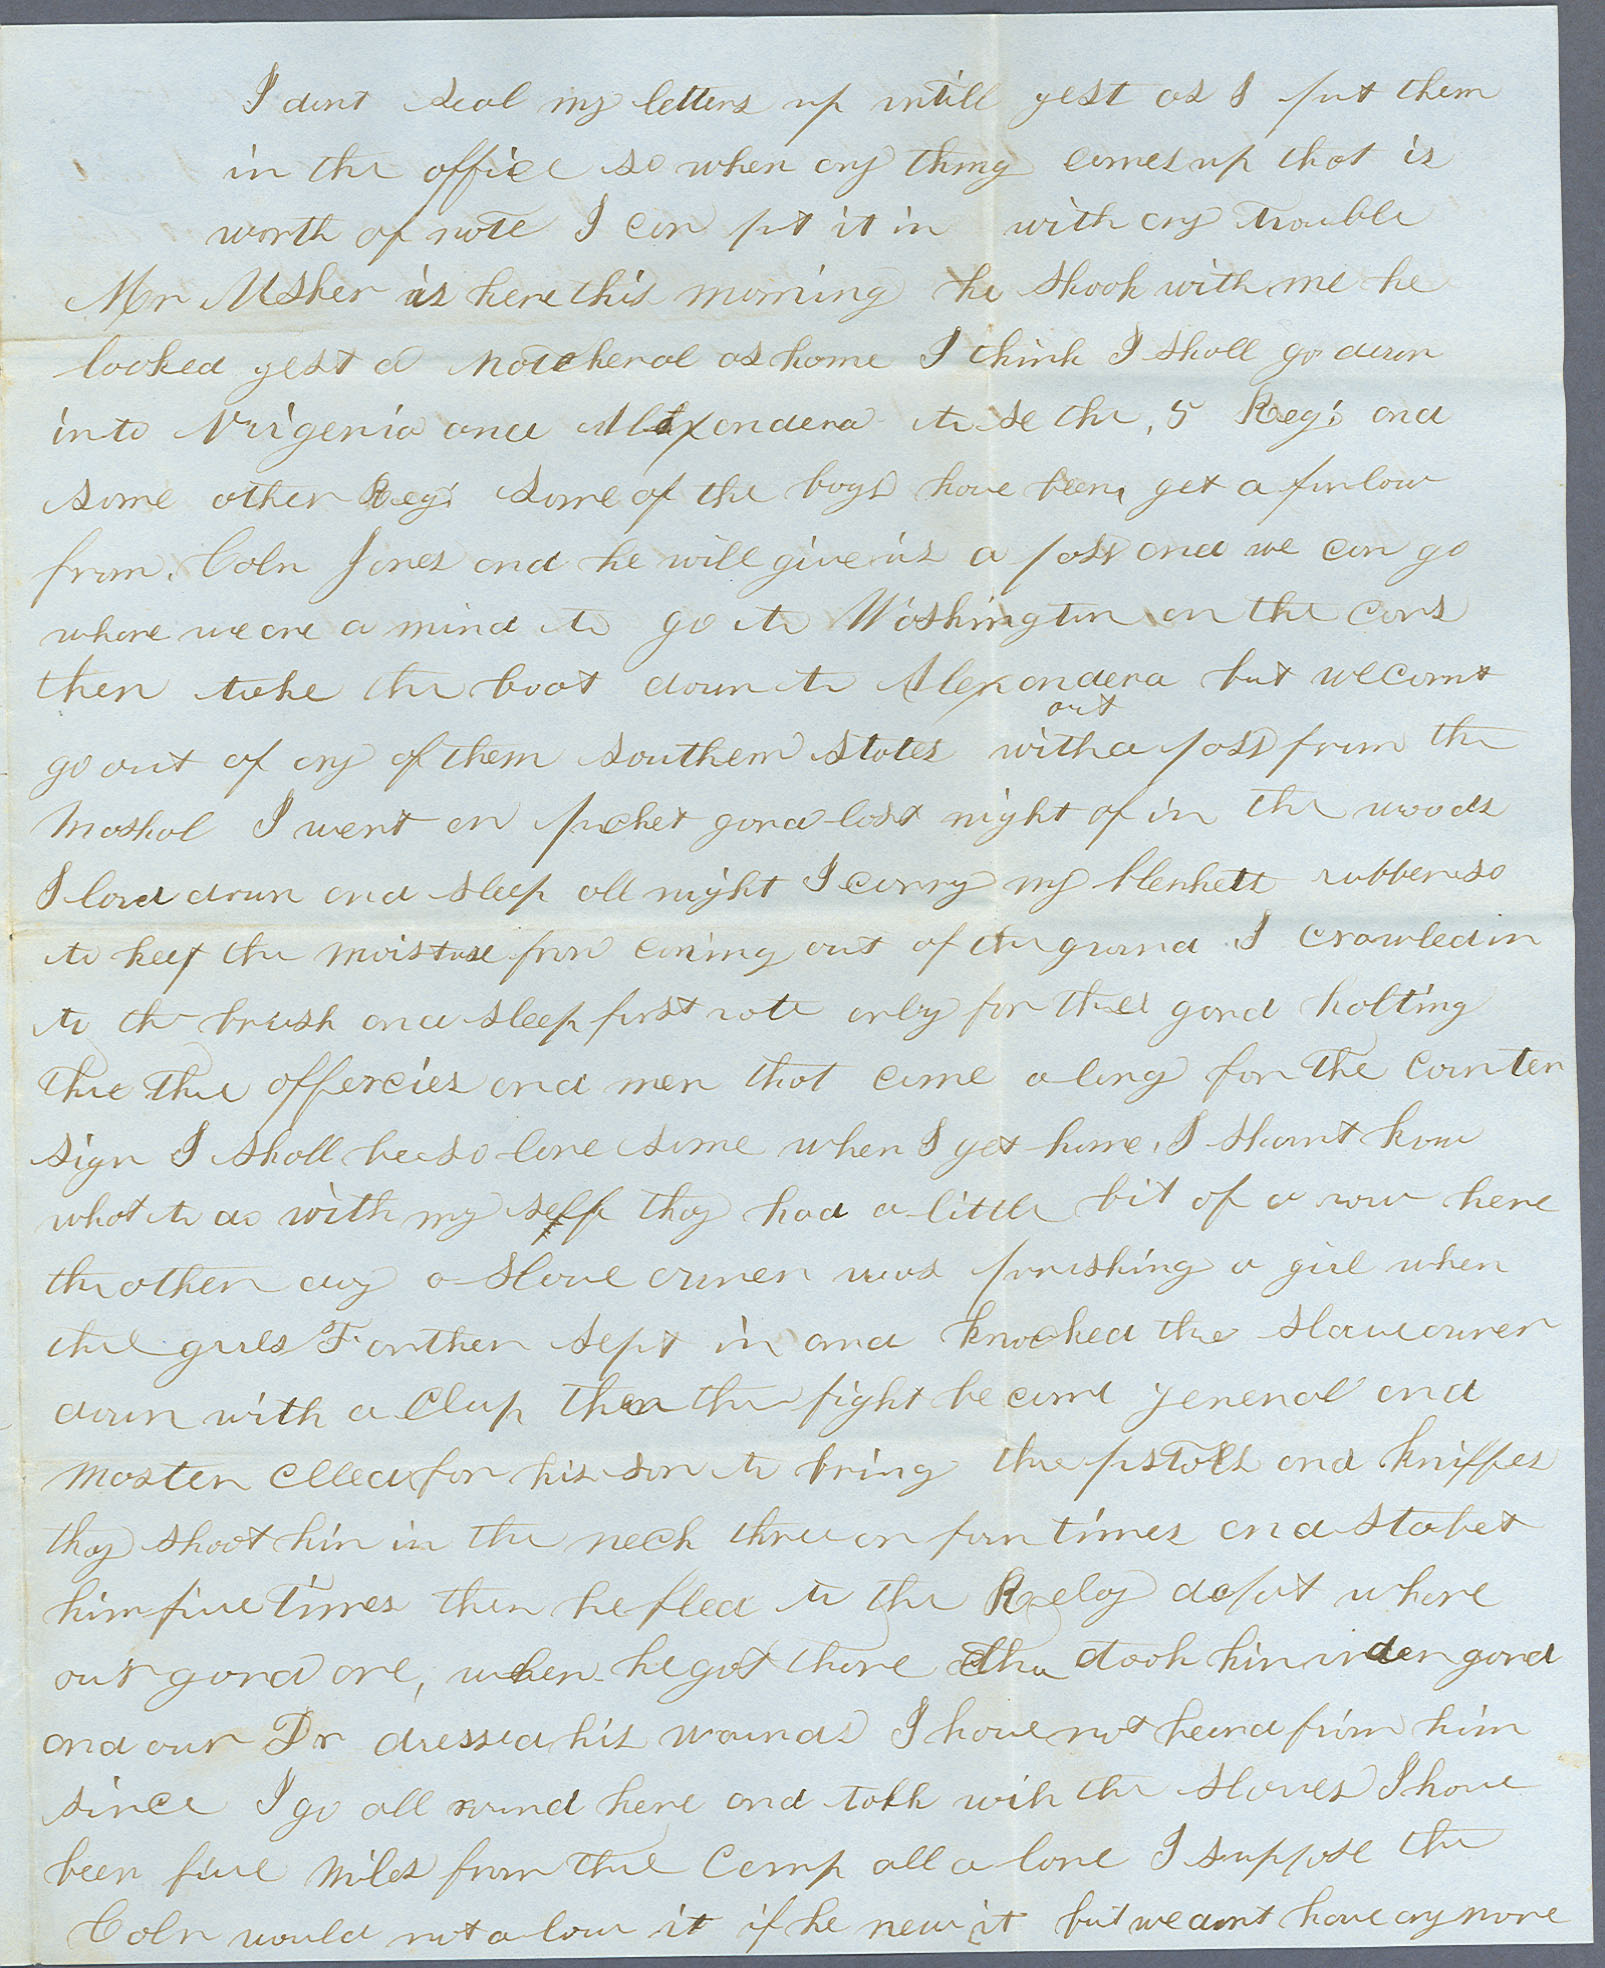 I dont seal my letters up untill yest as I put them
in the office so when eny thing comes up that is
worth of note I can put it in with eny trouble
Mr Usher is here this morning he shook with me he
looked yest a natcheral as home I think I shall go down
into Virigenia and Alexandera to se the 5 Reg: and
some other Reg: some of the boys have been get a furlow
from Coln Jones and he will give us a pass and we can go
whare we are a mind to go to Washington on the cars
then take the boat down to Alexandera but we cannt
out
go out of eny of them southern states with a pass from the
Mashal I went on picket gard last night of in the woods
I laid down and sleep all night I carry my blenkett rubber so
to keep the moisture from coming out of the ground I crawled in
to the brush and sleep first rate only for the gard holting
the the offercies and men that came a long for the counter
sign I shall be so lone some when I get home I shannt know
what to do with my self thay had a little bit of a row here
the other day a slave owner was punishing a girl when
the girls Farther sept in and knocked the slave owner
down with a Clup then the fight be came jeneral and
master clled for his son to bring the pistols and kniffes
thay shoot him in the neck three or four times and stabet
him five times then he fled to the Relay depot whare
our gard are, when he got thare tha took him under gard
and our Dr dressed his wounds I have not heard from him
since I go all round here and talk wih the slaves I have
been five miles from the Camp all a lone I suppose the
Coln would not a low it if he new it but we dont have eny more